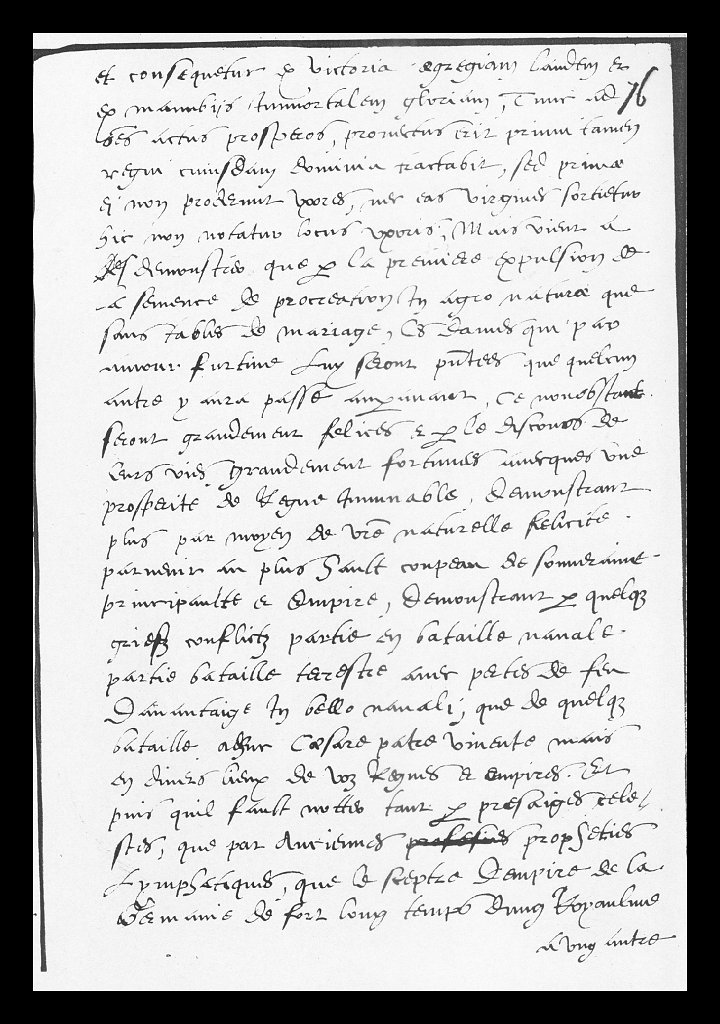 et consequetur ex victoria egregiam laudem et
76
ex manubijs immortalem gloriam, Tunc ad
actus prosperos, promotus erit primum tamen
regni cuiusdam dominia tractabit, sed primæ
ei non proderunt vxores, nec eas virgines sortietur
hic non notatur locus vxoris, Mais vient a
demonstrer que p la premiere expulsion de
la semence de procreation In agro naturæ que
sans tables de mariage, Et dames qui par
amour furtive luy seront que quelcun
autre y aura passe auparavant, Ce nonobstant
seront grandement felices et p le discours de
leurs vies grandement fortunes avecques une
prosperite de Regne Innumable, demonstrant
plus par moyen de vre naturelle felicite
parvenir au plus hault coupeau de souveraine
principaulte et Empire, demonstrant p quelq
griefz conflictz partie en bataille navale
partie bataille terrestre avec pertes de feu
Davantaige In bello navali, que de quelq
bataille adhuc Cæsare patre vivente mais
en divers lieux de voz Regnes et empires. Et
puis quil fault notter tant p presaiges cele
stes, que par Anciennes propheties
Lymphatiques, que le sceptre d'empire de la
Germanie de fort long temps dung Royaulme
a ung autre